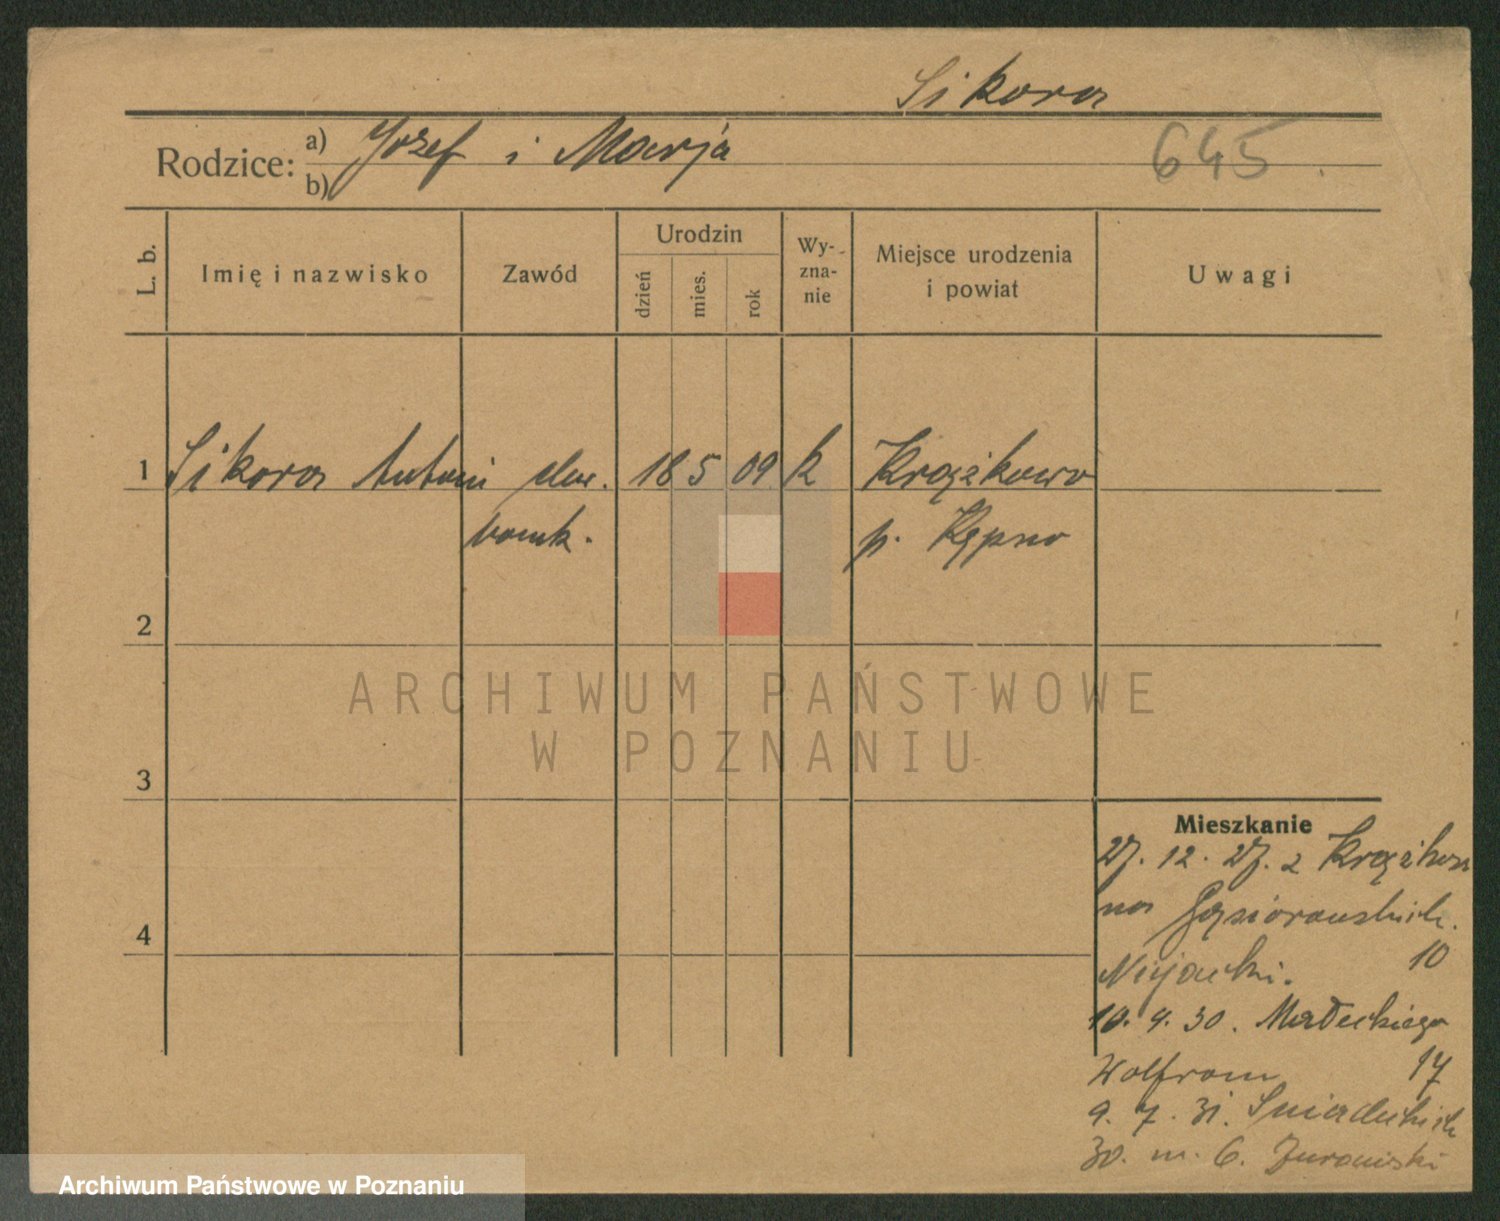 Sikora
645
Rodzice: a) Jozef i Marja
b)
L. b.
Imię i nazwisko
Zawód
Urodzin
dzień
mies.
rok
Wy-
zna-
nie
Miejsce urodzenia
i powiat
Uwagi
1 Sikora Antoni 18 5 09 k Krążkowo
p. Kępno
2
3
4
Mieszkanie
27. 12. 27. z Krążkowa
na Gąsiorowskich.
10
10. 4. 30. Małeckiego
Wolfram 17
9. 7. 31. Śniadeckich
30. m. 6. Żurowski
ARCHIWUM PAŃSTWOWE
W POZNANIU
Archiwum Państwowe w Poznaniu